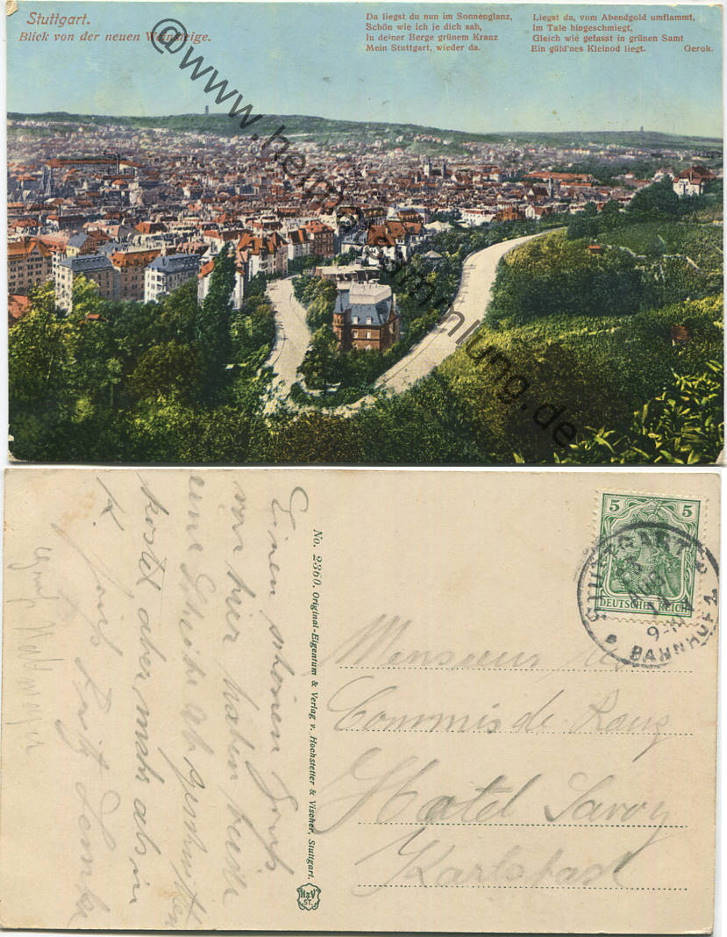 Stuttgart.
Blick von der neuen Weinsteige.
Da liegst du nun im Sonnenglanz,
Schön wie ich je dich sah,
In deiner Berge grünem Kranz
Mein Stuttgart, wieder da.
Liegst da, vom Abendgold umflammt,
Im Tale hingeschmiegt,
Gleich wie gefasst in grünen Samt
Ein güld'nes Kleinod liegt. Gerok.
@www.heimatsammlung.de
Einen schönen Gruß
von hier haben heute
eine Scheibe abgeschnitten
kostet aber mehr als in
K.
No. 2360. Original-Eigentum & Verlag v. Hochstetter & Vischer, Stuttgart.
H&V
ST.
5 5
DEUTSCHES REICH
STUTTGART
9-10
BAHNHOF 2
Monsieur
Commis de Rang
Hotel Savoy
Karlsbad